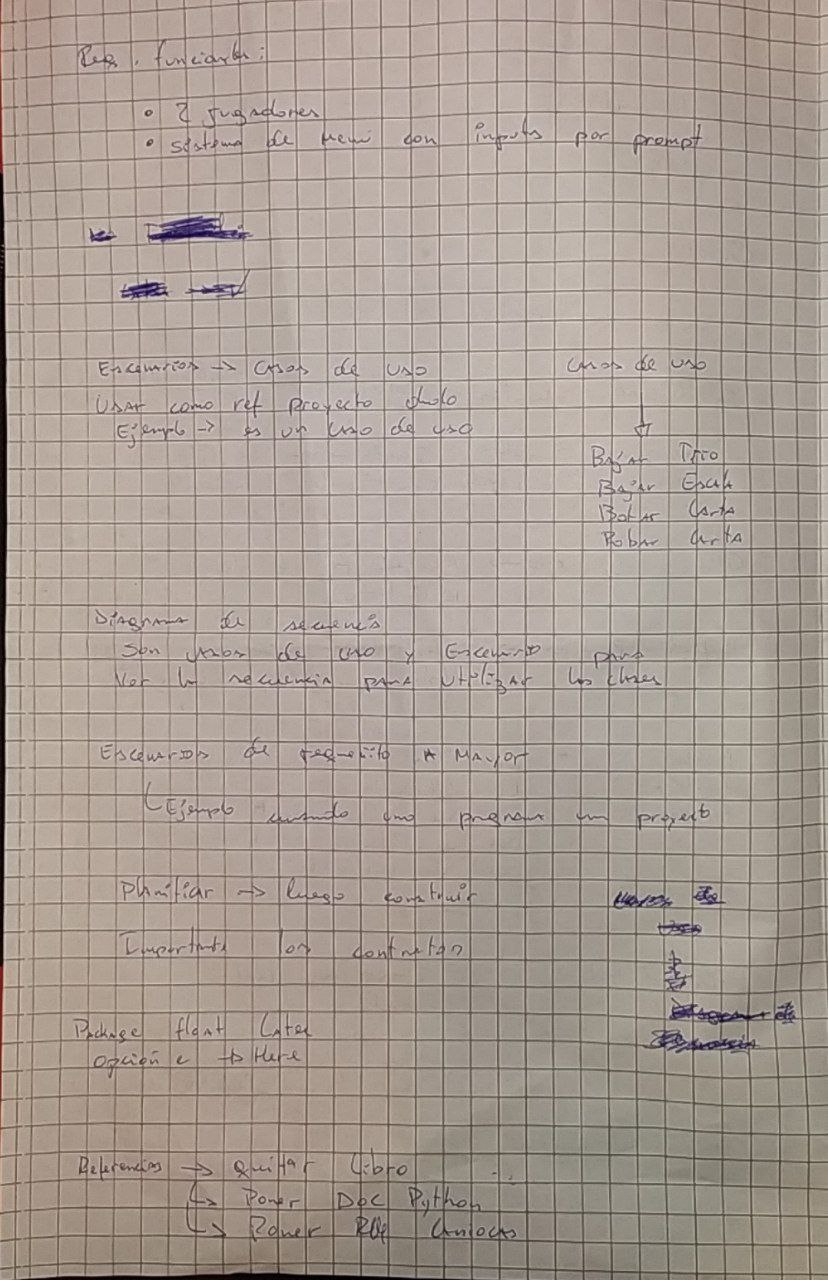 Req. funcionales:
• 2 jugadores
• sistema de menú con inputs por prompt
Escenarios → casos de uso
Usar como ref proyecto
Ejemplo → es un caso de uso
Casos de uso
Bajar Trio
Bajar Escala
Botar Carta
Robar Carta
Diagrama de secuencia
Son casos de uso y Escenario para
Ver la secuencia para utilizar las clases
Escenarios de requisito A Mayor
Ejemplo cuando uno programa un project
Planificar → luego construir
Importante los contratos
Package float Latex
opción → Here
Referencias → Quitar Libro
↳ Poner Doc Python
↳ Poner